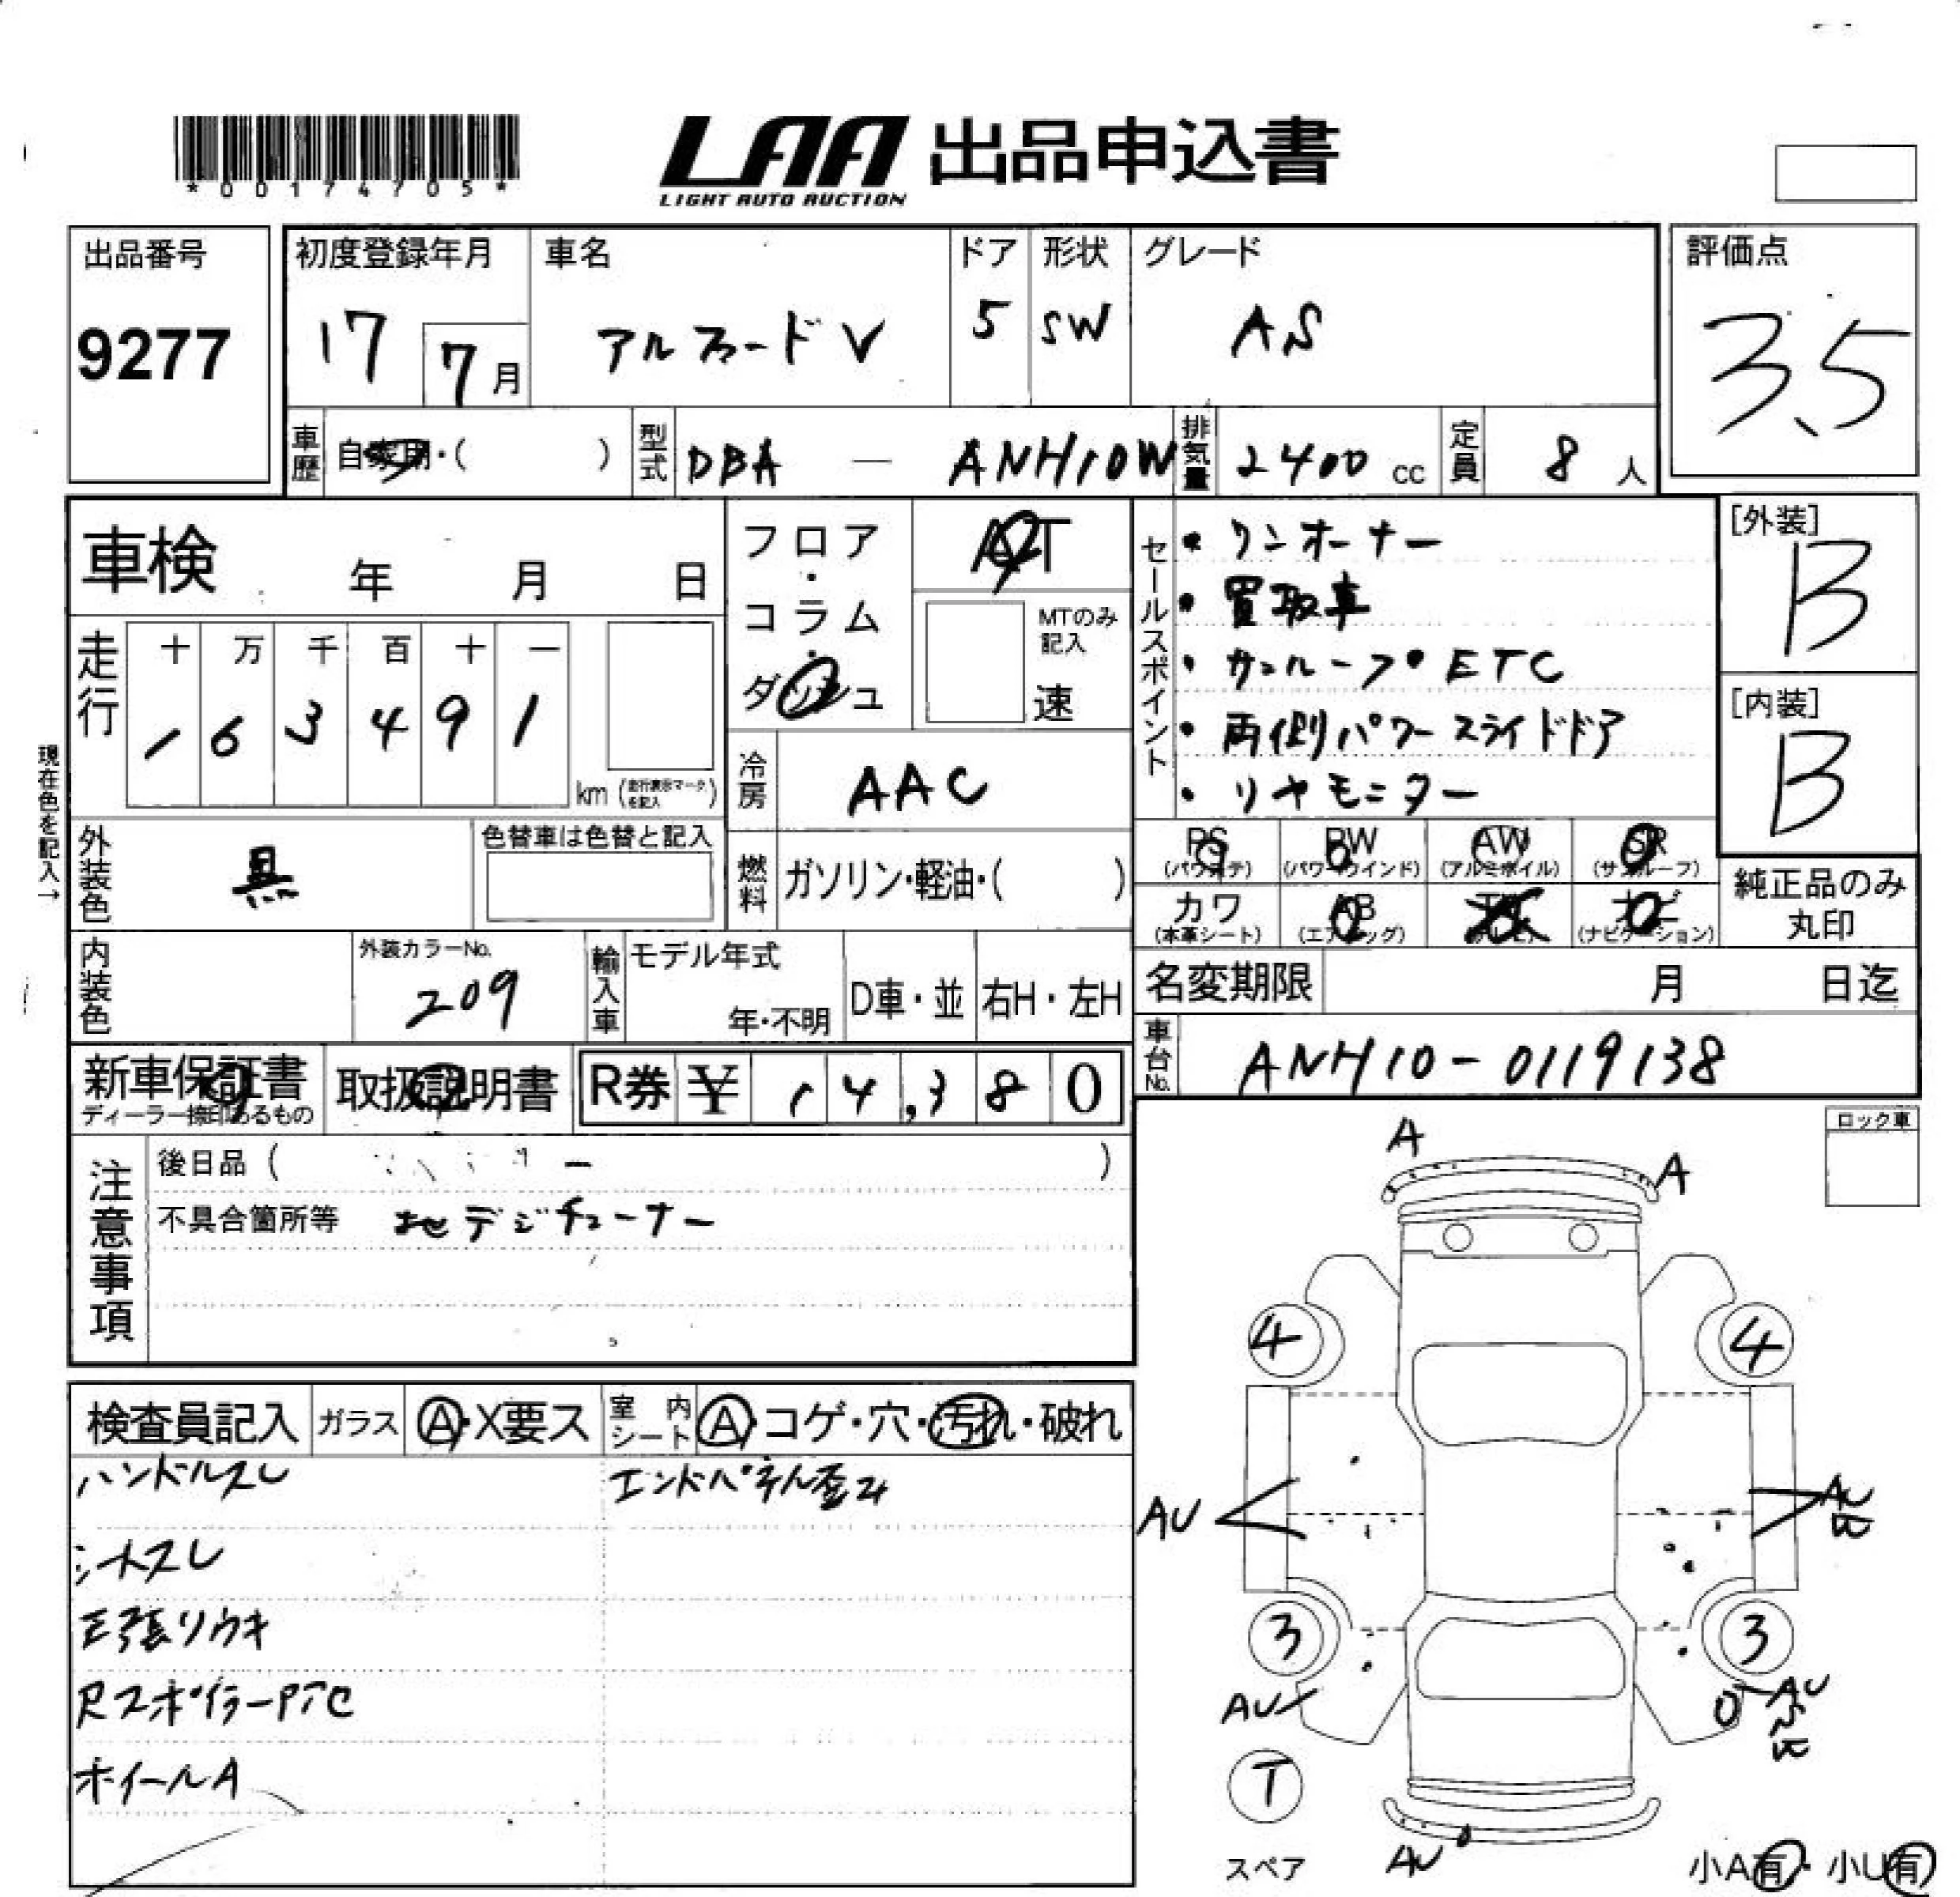 *00174705*
LAA 出品申込書
LIGHT AUTO AUCTION
出品番号
9277
初度登録年月
17
7月
車名
アルファードV
ドア
5
形状
SW
グレード
AS
評価点
3.5
車歴
自家用・( )
型式
DBA — ANH10W
排気量
2400 cc
定員
8 人
車検 年 月 日
走行
十 万 千 百 十 一
1 6 3 4 9 1
km (走行表示マークを記入)
現在色を記入→
フロア・コラム・ダッシュ
AT
MTのみ記入
速
冷房
AAC
燃料
ガソリン・軽油・( )
セールスポイント
・ワンオーナー
・買取車
・サンルーフ・ETC
・両側パワースライドドア
・リヤモニター
[外装]
B
[内装]
B
外装色
黒
色替車は色替と記入
PS (パワステ)
PW (パワーウインド)
AW (アルミホイル)
SR (サンルーフ)
カワ (本革シート)
AB (エアバッグ)
ナビ (ナビゲーション)
純正品のみ
丸印
内装色
外装カラーNo.
209
輸入車
モデル年式
年・不明
D車・並
右H・左H
名変期限 月 日迄
車台No.
ANH10-0119138
新車保証書
ディーラー捺印あるもの
取扱説明書
R券 ¥ 14,380
注意事項
後日品 ( )
不具合箇所等 地デジチューナー
ロック車
検査員記入
ガラス
A・X要ス
室内シート
A・コゲ・穴・汚れ・破れ
ハンドルスレ
シートスレ
天張リウキ
Rスポイラー
ホイールA
エンドパネル歪み
A
A
4
4
AU
AU
3
3
AU
AU
T
スペア
AU
小A有・小U有